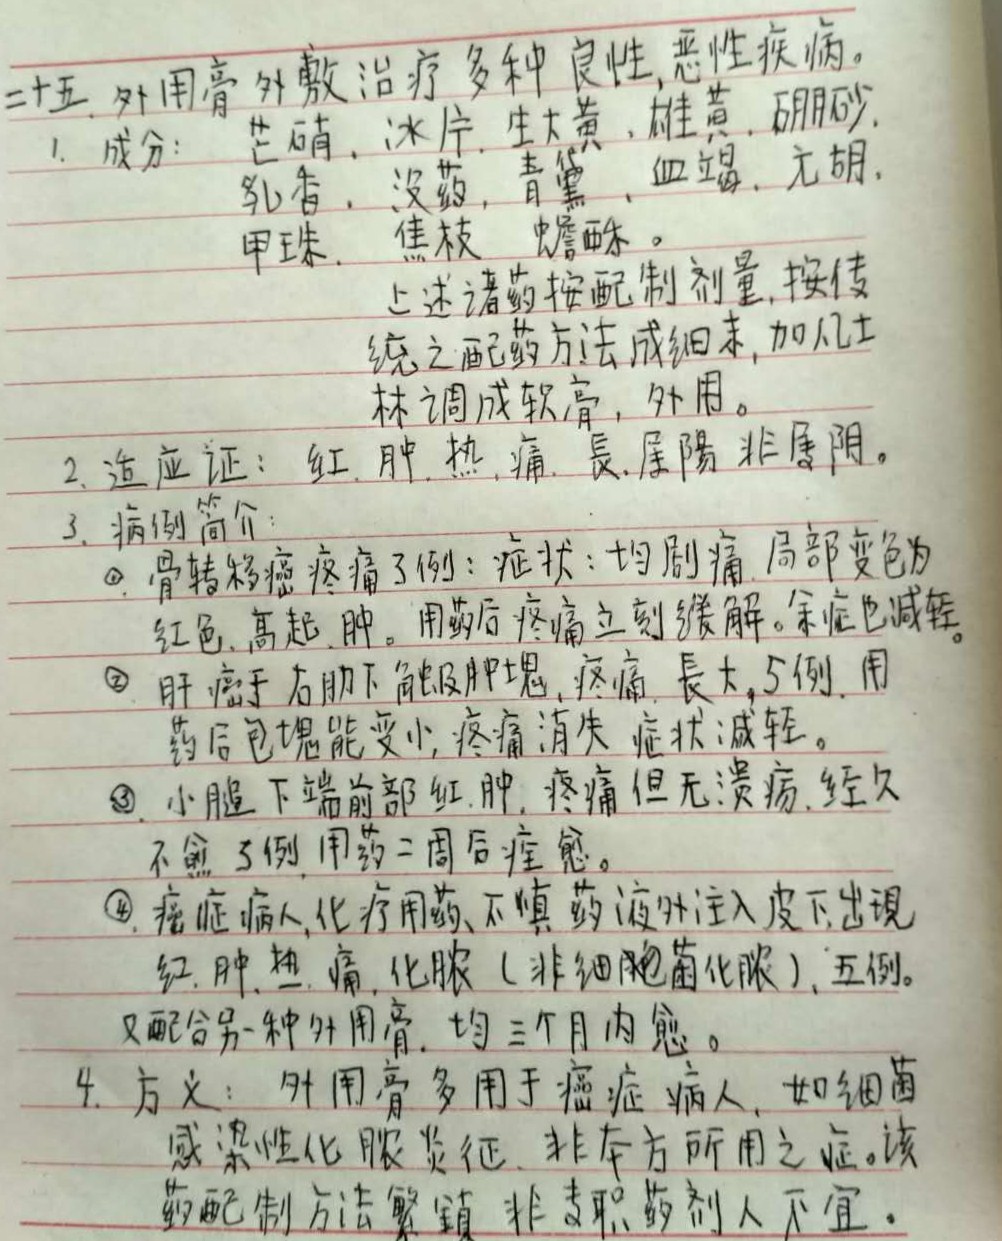 二十五. 外用膏外敷治疗多种良性,恶性疾病。
1. 成分: 芒硝、冰片、生大黄、雄黄、硼砂、
乳香、没药、青黛、血竭、元胡、
甲珠、焦枝 蟾酥。
上述诸药按配制剂量,按传
统之配药方法成细末,加凡士
林调成软膏,外用。
2. 适应证: 红、肿、热、痛、長、属陽非属阴。
3. 病例简介:
①. 骨转移癌疼痛3例:症状:均剧痛、局部变色为
红色、高起、肿。用药后疼痛立刻缓解。余症也减轻。
② 肝癌于右肋下触及肿塊、疼痛、長大,5例、用
药后包塊能变小,疼痛消失 症状减轻。
③. 小腿下端前部红、肿、疼痛但无溃疡、经久
不愈 5例、用药二周后痊愈。
④. 癌症病人,化疗用药、不慎药液外注入皮下,出現
红、肿、热、痛、化脓(非细胞菌化脓)、五例。
又配合另一种外用膏、均三个月内愈。
4. 方义: 外用膏多用于癌症病人、如细菌
感染性化脓炎征、非本方所用之症。该
药配制方法繁鎖 非专职药剂人不宜。